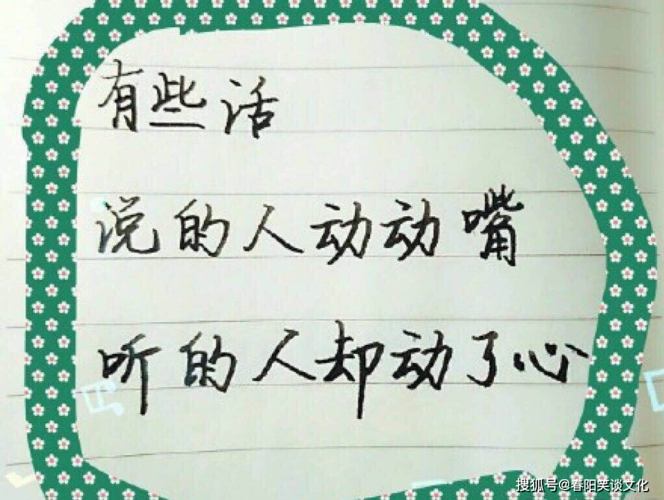 有些话
说的人动动嘴
听的人却动了心
搜狐号@春阳笑谈文化